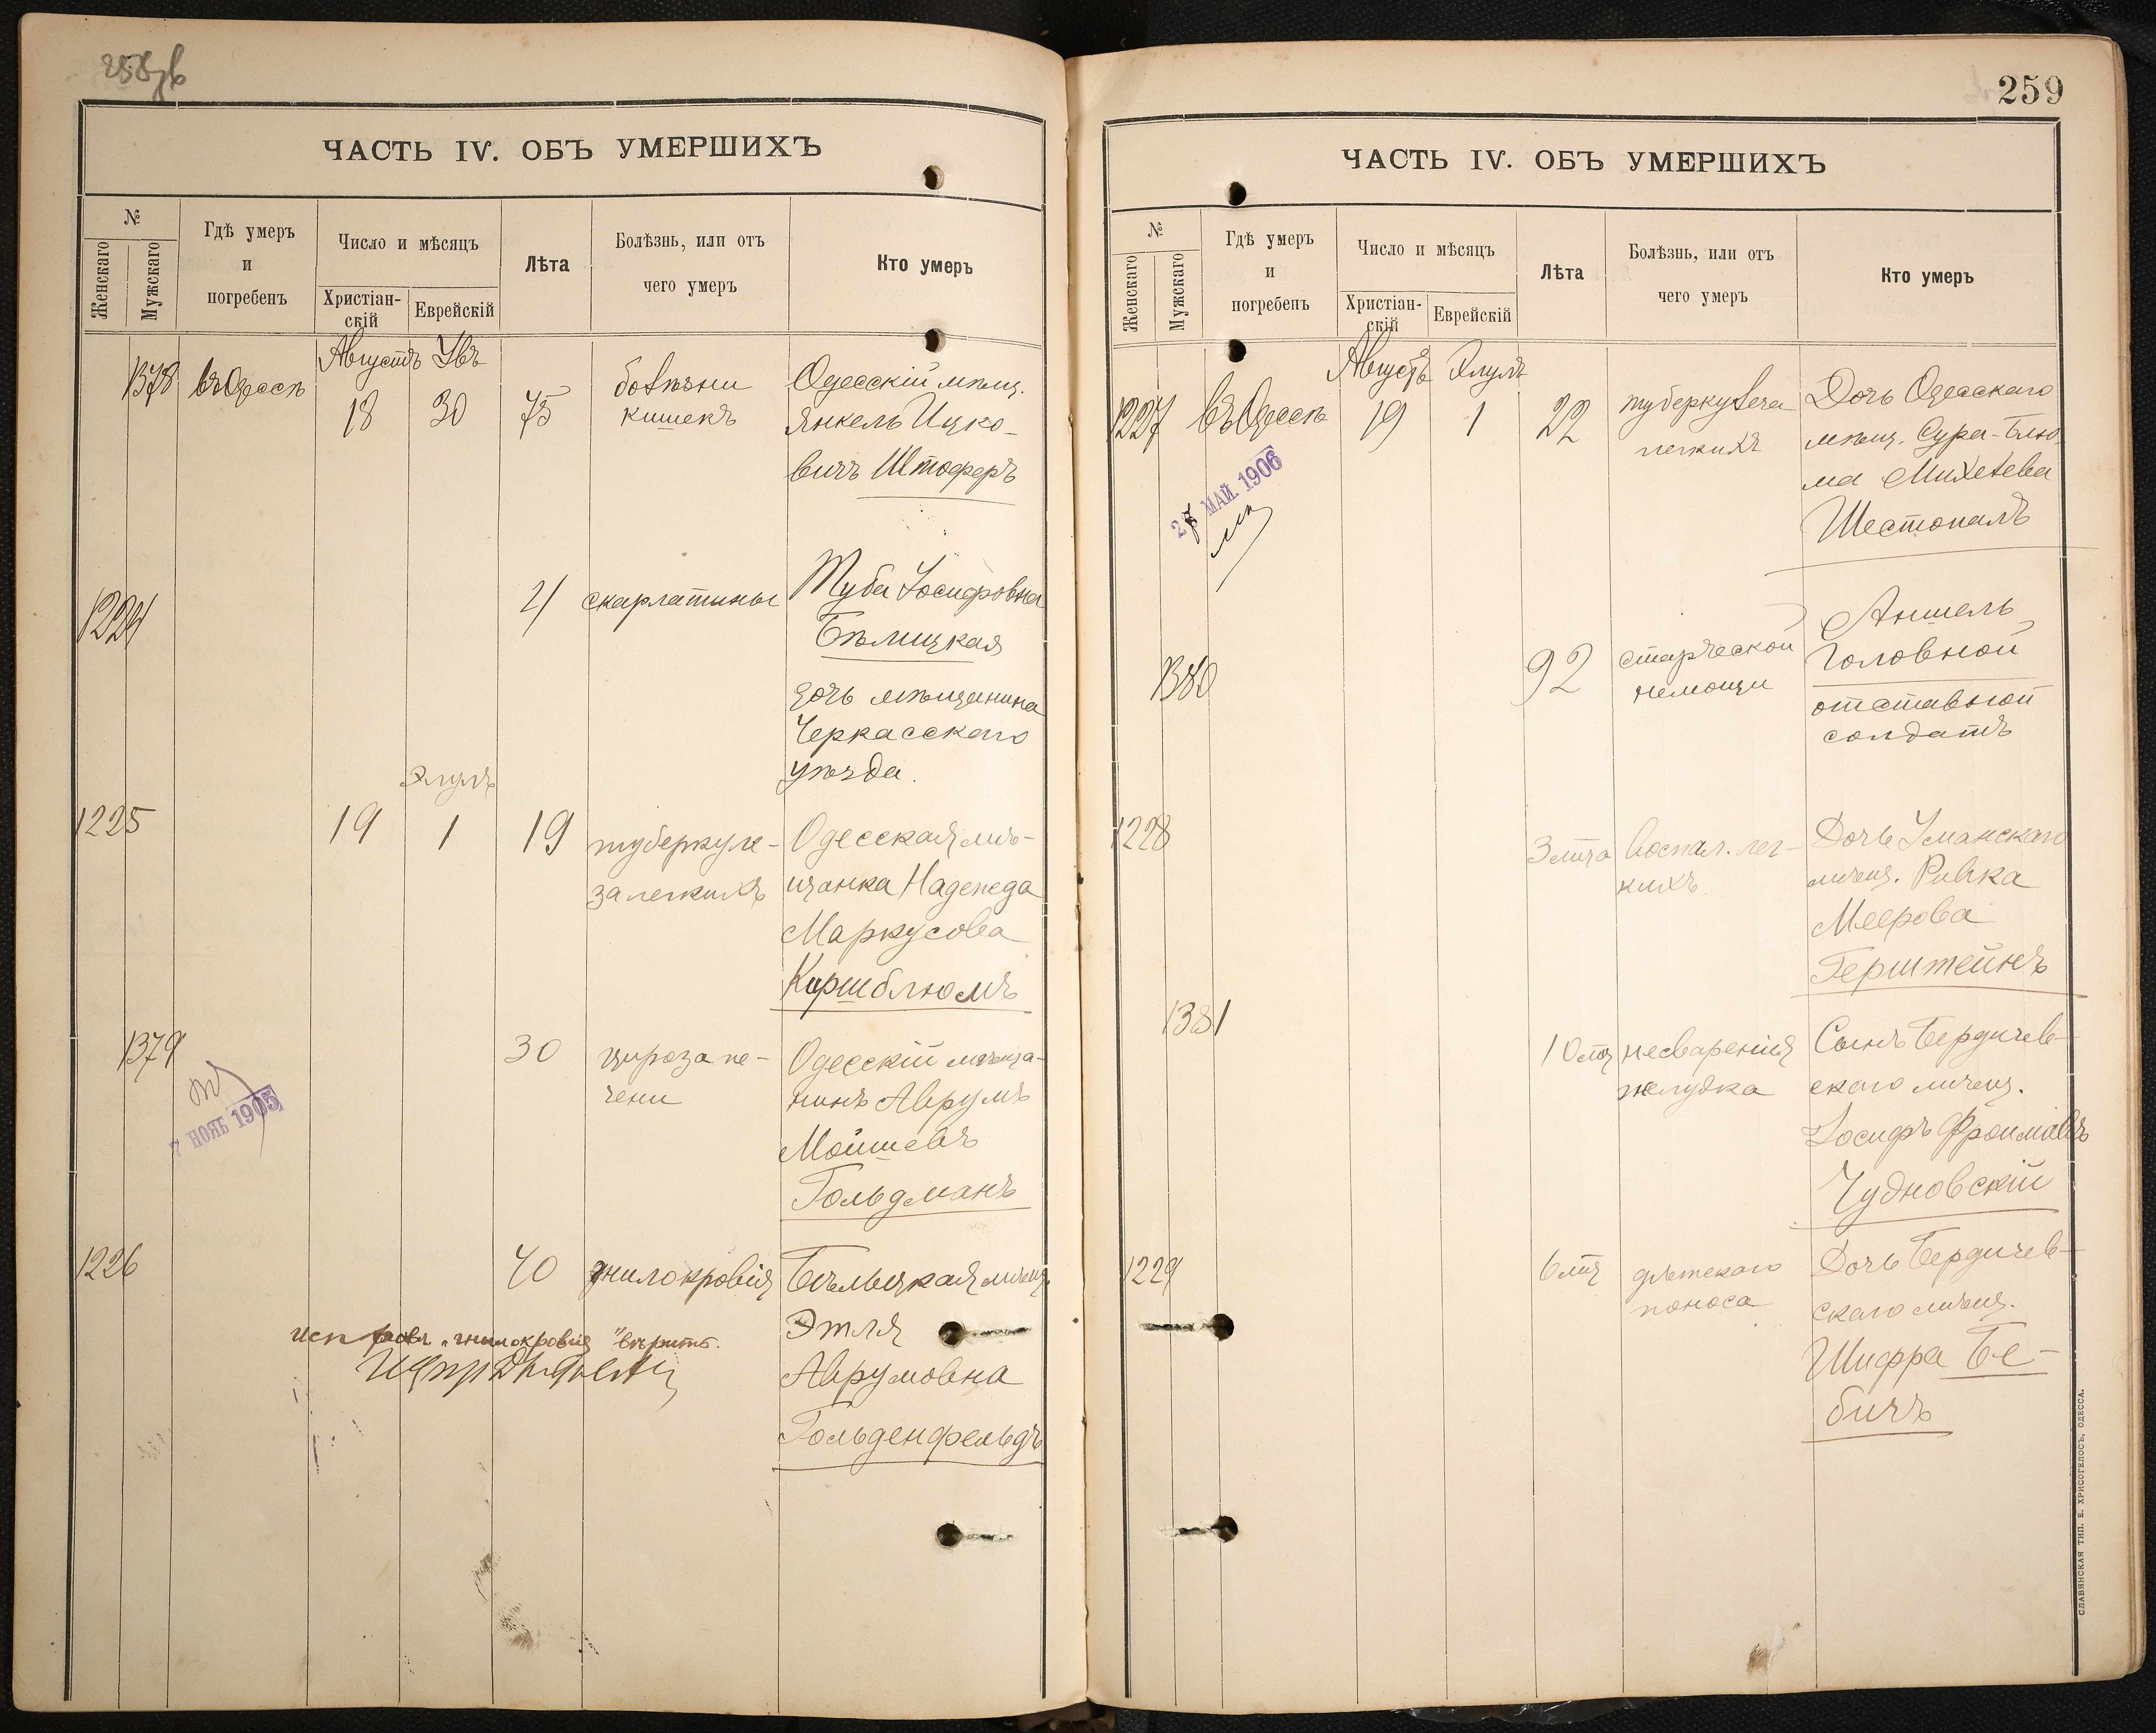 ЧАСТЬ IV. ОБЪ УМЕРШИХЪ
№
Женскаго
Мужскаго
Гдѣ умеръ
и
погребенъ
Число и мѣсяцъ
Христіан-
скій
Еврейскій
Лѣта
Болѣзнь, или отъ
чего умеръ
Кто умеръ
Августъ
1378 въ Одессѣ 18 30 75 болѣзни Одесскій мѣщ.
кишекъ Янкель Ицко-
вичъ Штоферъ
1224 4 скарлатины Туба Іосифовна
Бѣлицкая
дочь мѣщанина
Черкасскаго
уѣзда.
Элулъ
1225 19 1 19 туберкуле- Одесская мѣ-
за легкихъ щанка Надежда
Маркусова
Киршблюмъ
1379 30 цироза пе- Одесскій мѣща-
чени нинъ Аврумъ
Мойшевъ
Гольдманъ
7 НОЯБ 1905
1226 40 гнилокровія Бѣльцкая мѣщ.
"гнилокровія" вѣрить. Этля
Аврумовна
Гольденфельдъ
259
ЧАСТЬ IV. ОБЪ УМЕРШИХЪ
№
Женскаго
Мужскаго
Гдѣ умеръ
и
погребенъ
Число и мѣсяцъ
Христіан-
скій
Еврейскій
Лѣта
Болѣзнь, или отъ
чего умеръ
Кто умеръ
Августъ Элулъ
1227 въ Одессѣ 19 1 22 туберкулеза Дочь Одесскаго
легкихъ мѣщ. Сура-Блю
ма Михелева
Шестопалъ
МАЙ. 1906
1380 92 старческой Аншель
немощи Головной
отставной
солдатъ
1228 3 лѣта воспал. лег- Дочь Уманскаго
кихъ мѣщ. Ривка
Меерова
Герштейнъ
1381 10 мц несваренія Сынъ Бердичев-
желудка скаго мѣщ.
Іосифъ Фроимовъ
Чудновскій
1229 6 мц дѣтскаго Дочь Бердичев-
поноса скаго мѣщ.
Шифра Бе-
бичъ
СЛАВЯНСКАЯ ТИП. Е. ХРИСОГЕЛОСЪ, ОДЕССА.